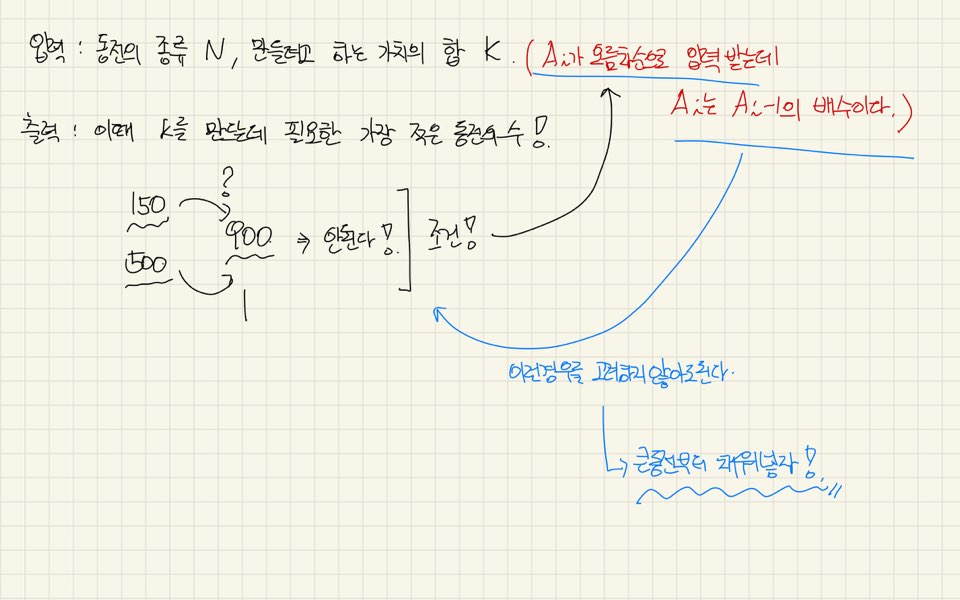 입력 : 동전의 종류 N, 만들려고 하는 가치의 합 K. (Ai가 오름차순으로 입력 받는데
Ai는 Ai-1의 배수이다.)
출력 : 이때 K를 만드는데 필요한 가장 적은 동전의 수!
?
150
900 ⇒ 안된다! 조건!
500
이런경우를 고려하지않아도된다.
큰동전부터 채워넣자!